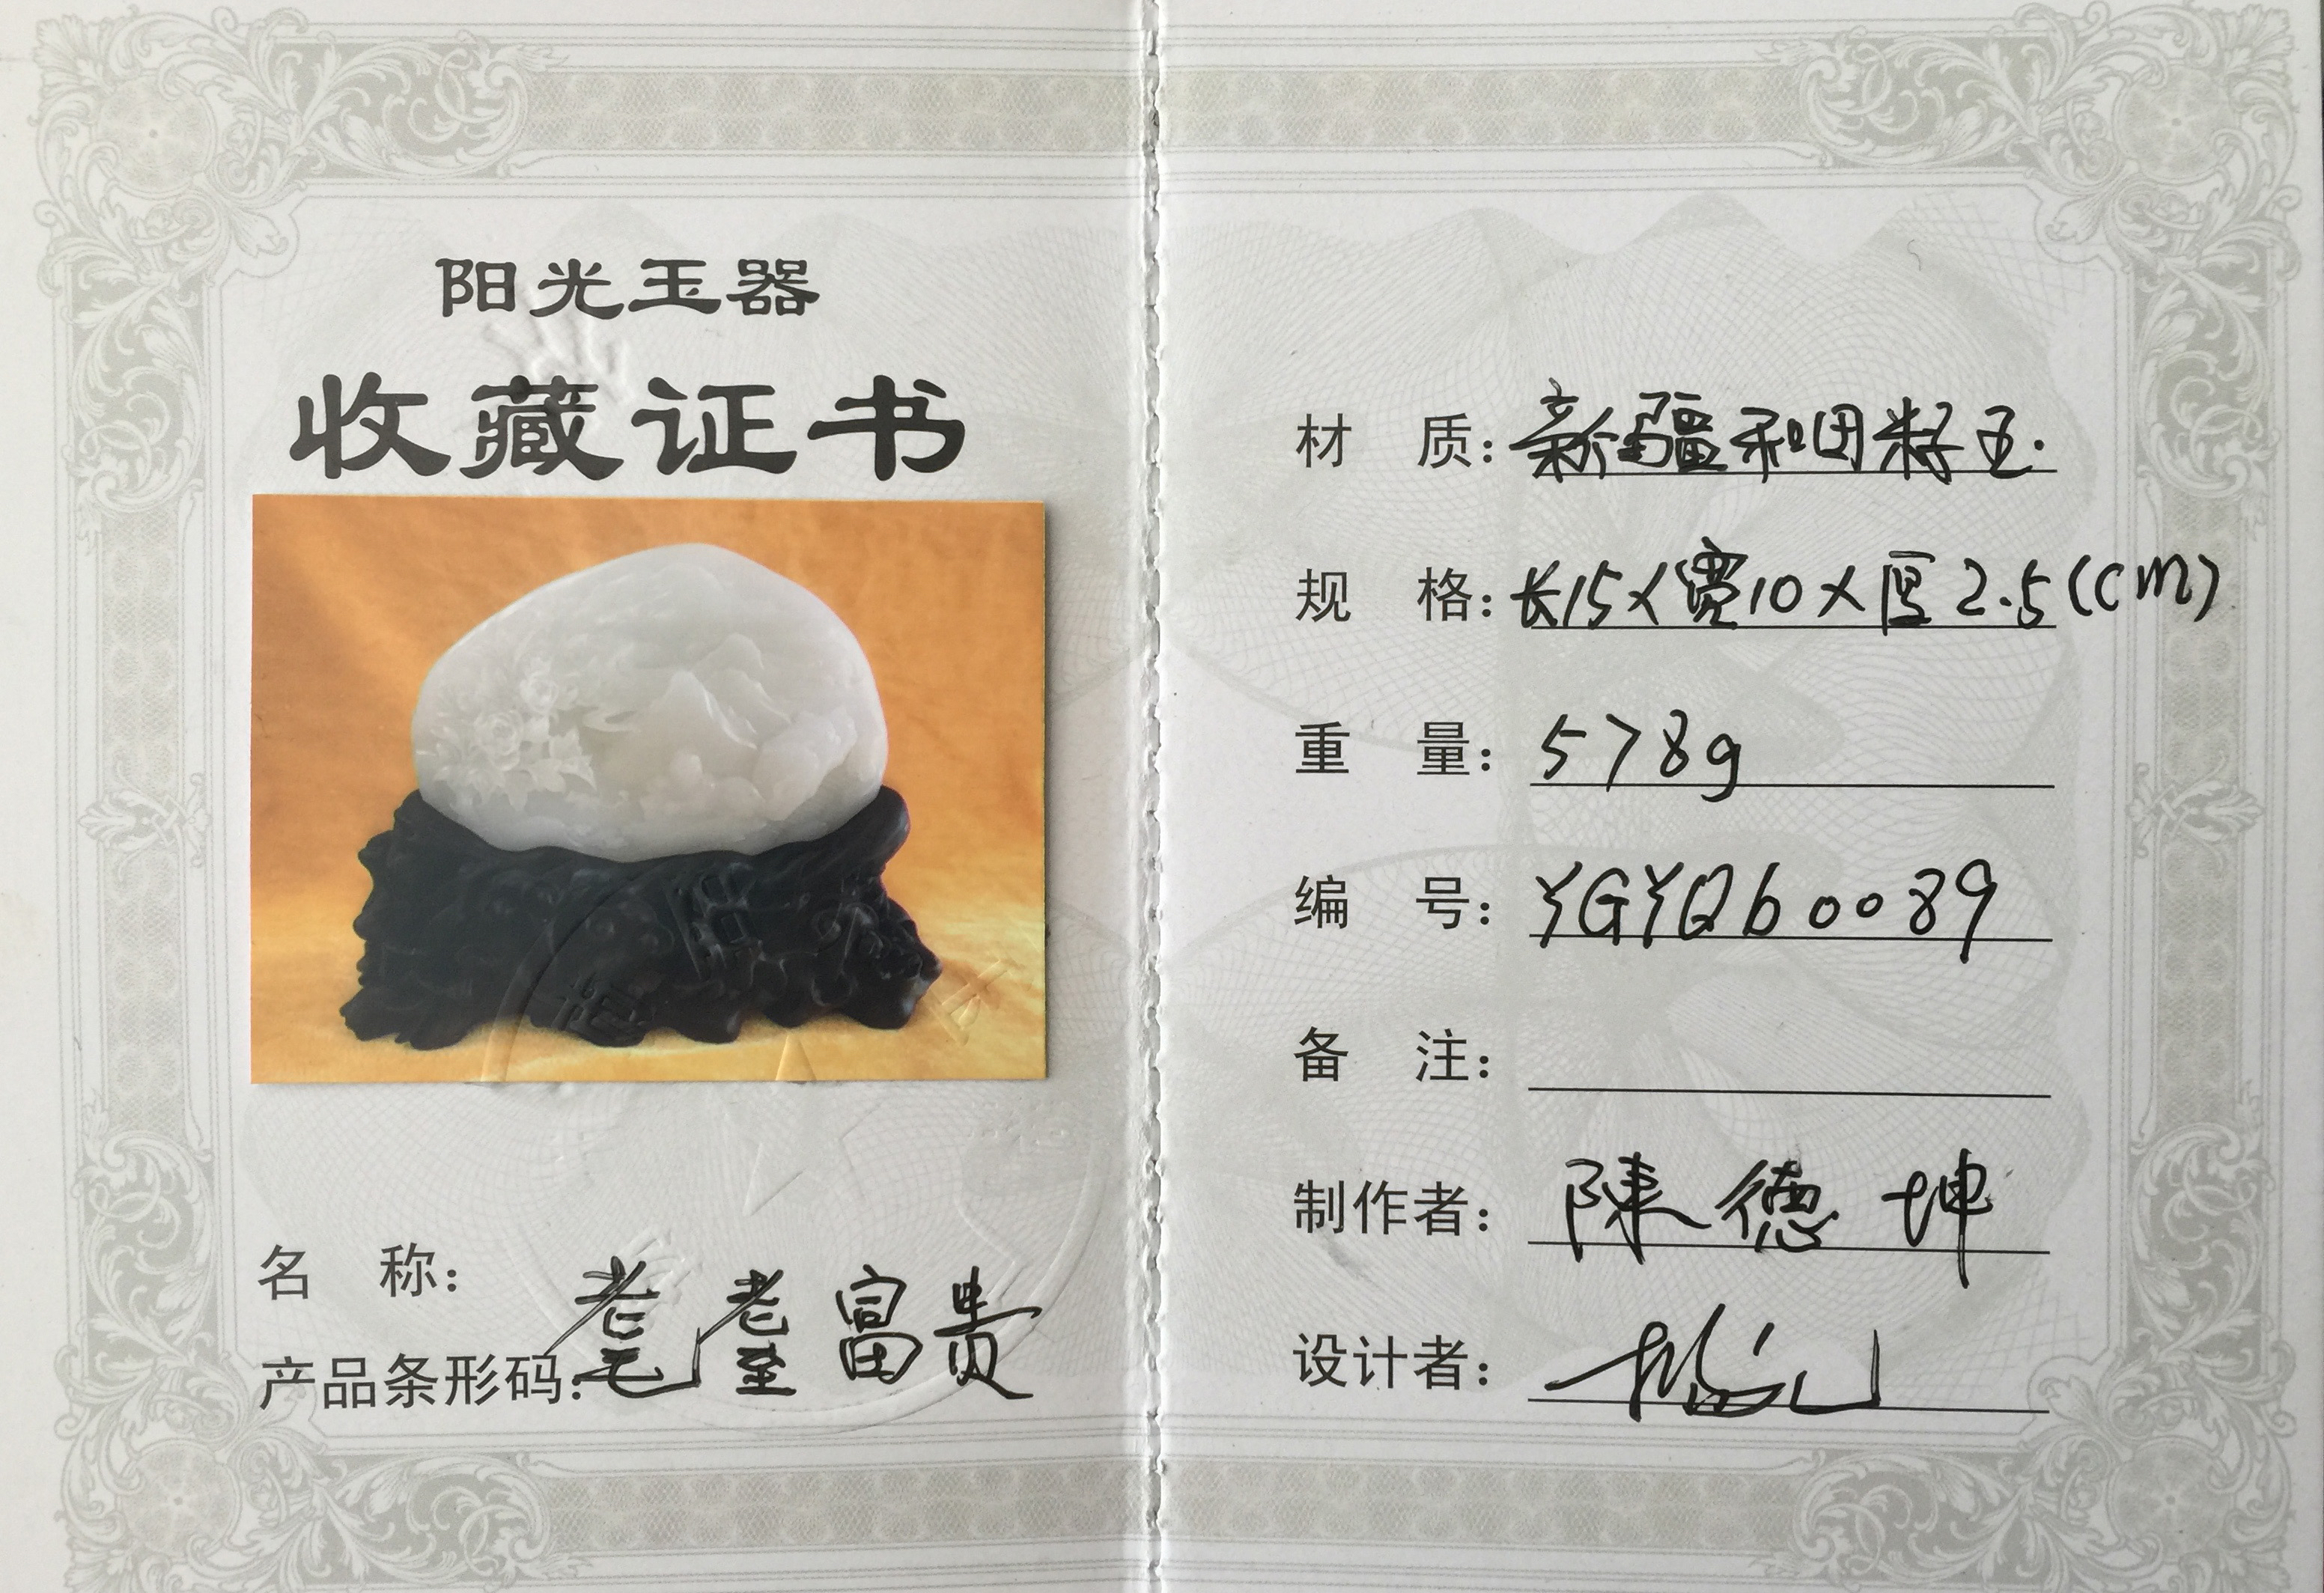 阳光玉器
收藏证书
名 称: 耄耋富贵
产品条形码:
材 质: 新疆和田籽玉.
规 格: 长15×宽10×厚2.5(cm)
重 量: 578g
编 号: YGYQb0089
备 注:
制作者: 陳德坤
设计者: